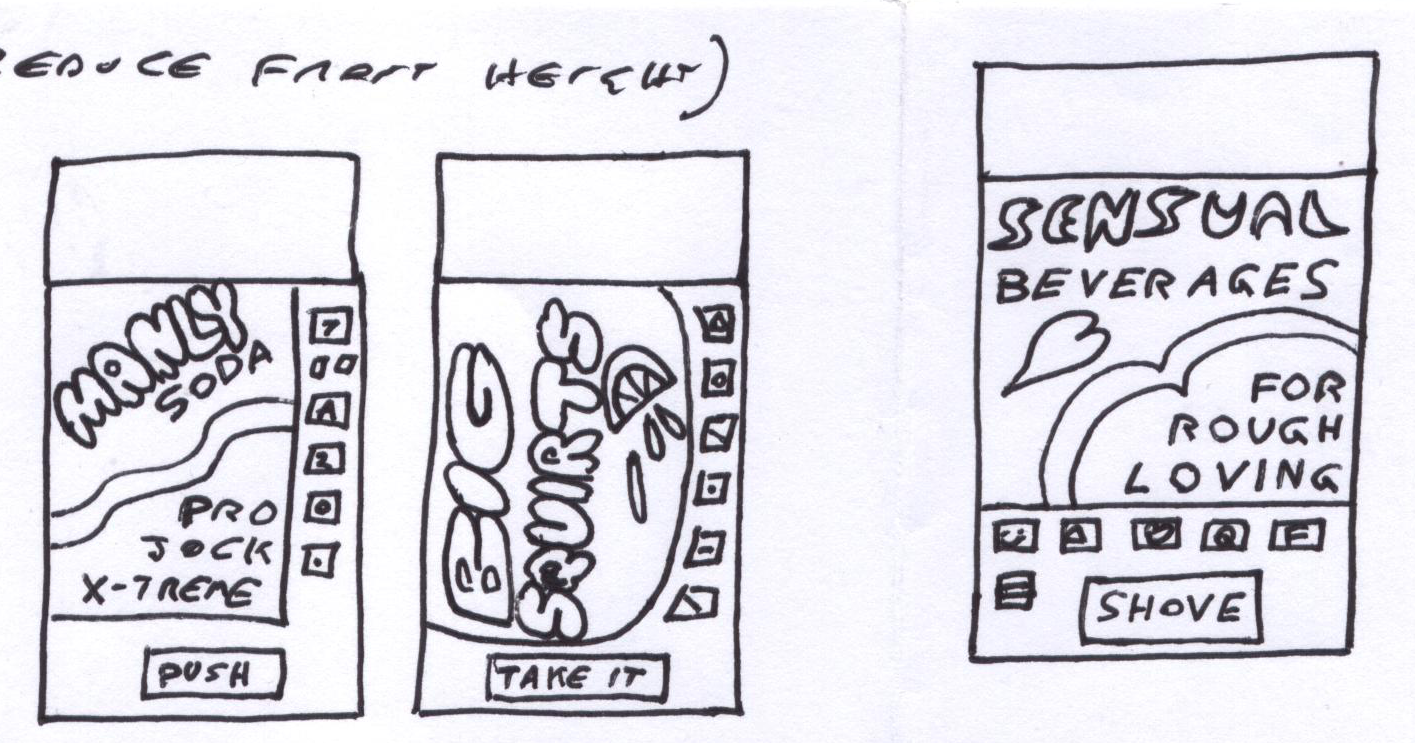 REDUCE FRONT HEIGHT)
MANLY
SODA
PRO
JOCK
X-TREME
PUSH
BIG
SQUIRTS
TAKE IT
SENSUAL
BEVERAGES
FOR
ROUGH
LOVING
SHOVE